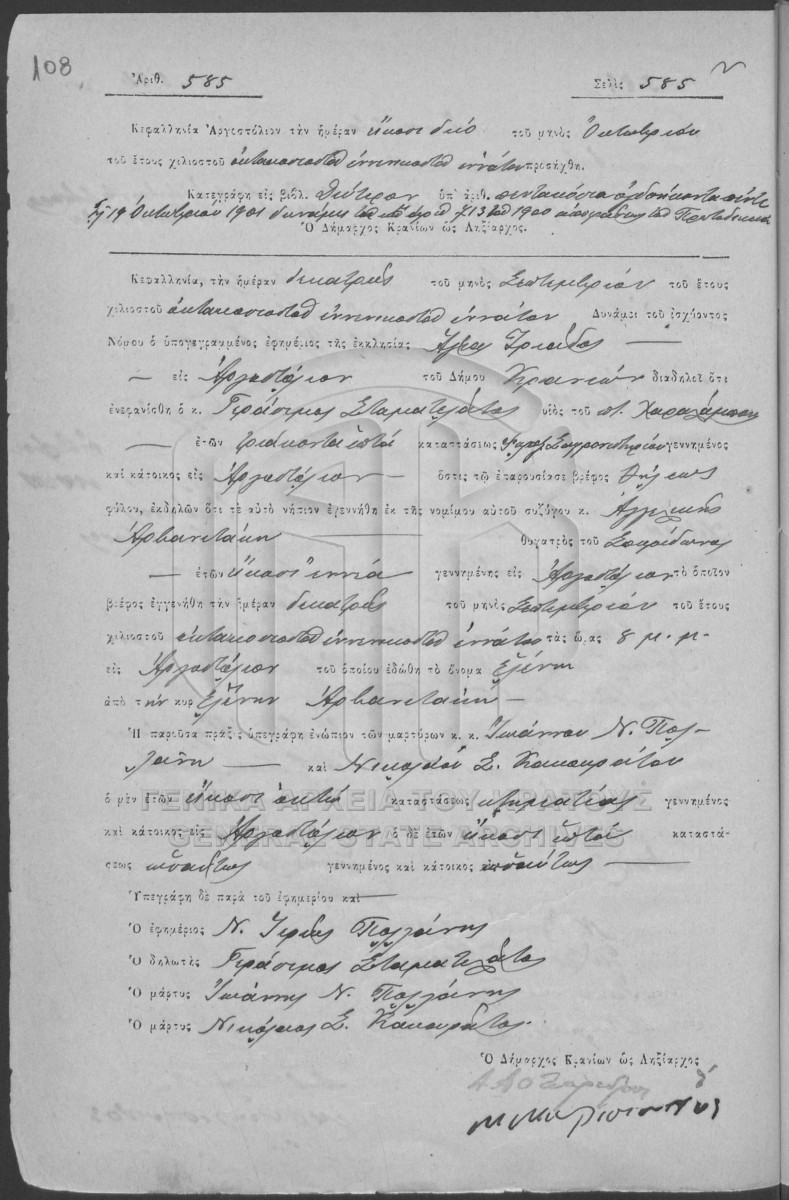 108
Ἀριθ. 585 Σελὶς 585
Κεφαλληνία Ἀργοστόλιον τὴν ἡμέραν εἴκοσι δύο τοῦ μηνὸς Ὀκτωβρίου
τοῦ ἔτους χιλιοστοῦ ὀκτακοσιοστοῦ ἐννενηκοστοῦ ἐννάτου προσήχθη.
Κατεγράφη εἰς βιβλ. δεύτερον ὑπ' ἀριθ. πεντακόσια ὀγδοήκοντα πέντε
τῇ 19 Ὀκτωβρίου 1901 δυνάμει τῆς ὑπ' ἀριθ 713 τοῦ 1900 ἀποφάσεως τοῦ
Ὁ Δήμαρχος Κρανίων ὡς Ληξίαρχος.
Κεφαλληνία, τὴν ἡμέραν δεκατρεῖς τοῦ μηνὸς Σεπτεμβρίου τοῦ ἔτους
χιλιοστοῦ ὀκτακοσιοστοῦ ἐννενηκοστοῦ ἐννάτου Δυνάμει τοῦ ἰσχύοντος
Νόμου ὁ ὑπογεγραμμένος ἐφημέριος τῆς ἐκκλησίας Ἁγίας Τριάδος
εἰς Ἀργοστόλιον τοῦ Δήμου Κρανίων διαδηλοῖ ὅτι
ἐνεφανίσθη ὁ κ. Γεράσιμος Σταματελάτος υἱὸς τοῦ π. Χαραλάμπους
ἐτῶν τριάκοντα ἑπτά καταστάσεως γεννημένος
καὶ κάτοικος εἰς Ἀργοστόλιον ὅστις τῷ ἐπαρουσίασε βρέφος θήλεως
φύλου, ἐκδηλῶν ὅτι τὸ αὐτὸ νήπιον ἐγεννήθη ἐκ τῆς νομίμου αὐτοῦ συζύγου κ. Ἀγγελικῆς
Ἀρβανιτάκη θυγατρὸς τοῦ Σπυρίδωνος
ἐτῶν εἴκοσι ἐννέα γεννημένης εἰς Ἀργοστόλιον τὸ ὁποῖον
βρέφος ἐγγενήθη τὴν ἡμέραν δεκατρεῖς τοῦ μηνὸς Σεπτεμβρίου τοῦ ἔτους
χιλιοστοῦ ὀκτακοσιοστοῦ ἐννενηκοστοῦ ἐννάτου τὰς ὥρας 8 μ.μ.
εἰς Ἀργοστόλιον τοῦ ὁποίου ἐδώθη τὸ ὄνομα Ἑλένη
ἀπὸ τὴν κυρ Ἑλένην Ἀρβανιτάκη
Ἡ παροῦσα πρᾶξις ὑπεγράφη ἐνώπιον τῶν μαρτύρων κ. κ. Ἰωάννου Ν. Πολ-
λάνη καὶ Νικολάου Σ. Κακουράτου
ὁ μὲν ἐτῶν εἴκοσι ὀκτώ καταστάσεως κτηματίας γεννημένος
καὶ κάτοικος εἰς Ἀργοστόλιον ὁ δὲ ἐτῶν εἴκοσι ἑπτά καταστά-
σεως ὡσαύτως γεννημένος καὶ κάτοικος ὡσαύτως
Ὑπεγράφη δὲ παρὰ τοῦ ἐφημερίου καὶ
Ὁ ἐφημέριος Ν. Ἱερεὺς Πολλάνης
Ὁ δηλωτὴς Γεράσιμος Σταματελάτος
Ὁ μάρτυς Ἰωάννης Ν. Πολλάνης
Ὁ μάρτυς Νικόλαος Σ. Κακουράτος.
Ὁ Δήμαρχος Κρανίων ὡς Ληξίαρχος
ΓΕΝΙΚΑ ΑΡΧΕΙΑ ΤΟΥ ΚΡΑΤΟΥΣ
GENERAL STATE ARCHIVES